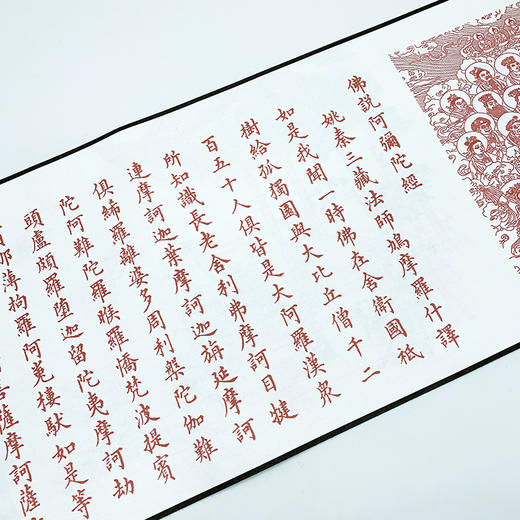 佛説阿彌陀經
姚秦三藏法師鳩摩羅什譯
如是我聞一時佛在舍衛國祇
樹給孤獨園與大比丘僧千二
百五十人俱皆是大阿羅漢衆
所知識長老舍利弗摩訶目揵
連摩訶迦葉摩訶迦旃延摩訶
俱絺羅離婆多周利槃陀伽難
陀阿難陀羅睺羅憍梵波提賓
頭盧頗羅墮迦留陀夷摩訶劫
那薄拘羅阿㝹樓馱如是等
菩薩摩訶薩